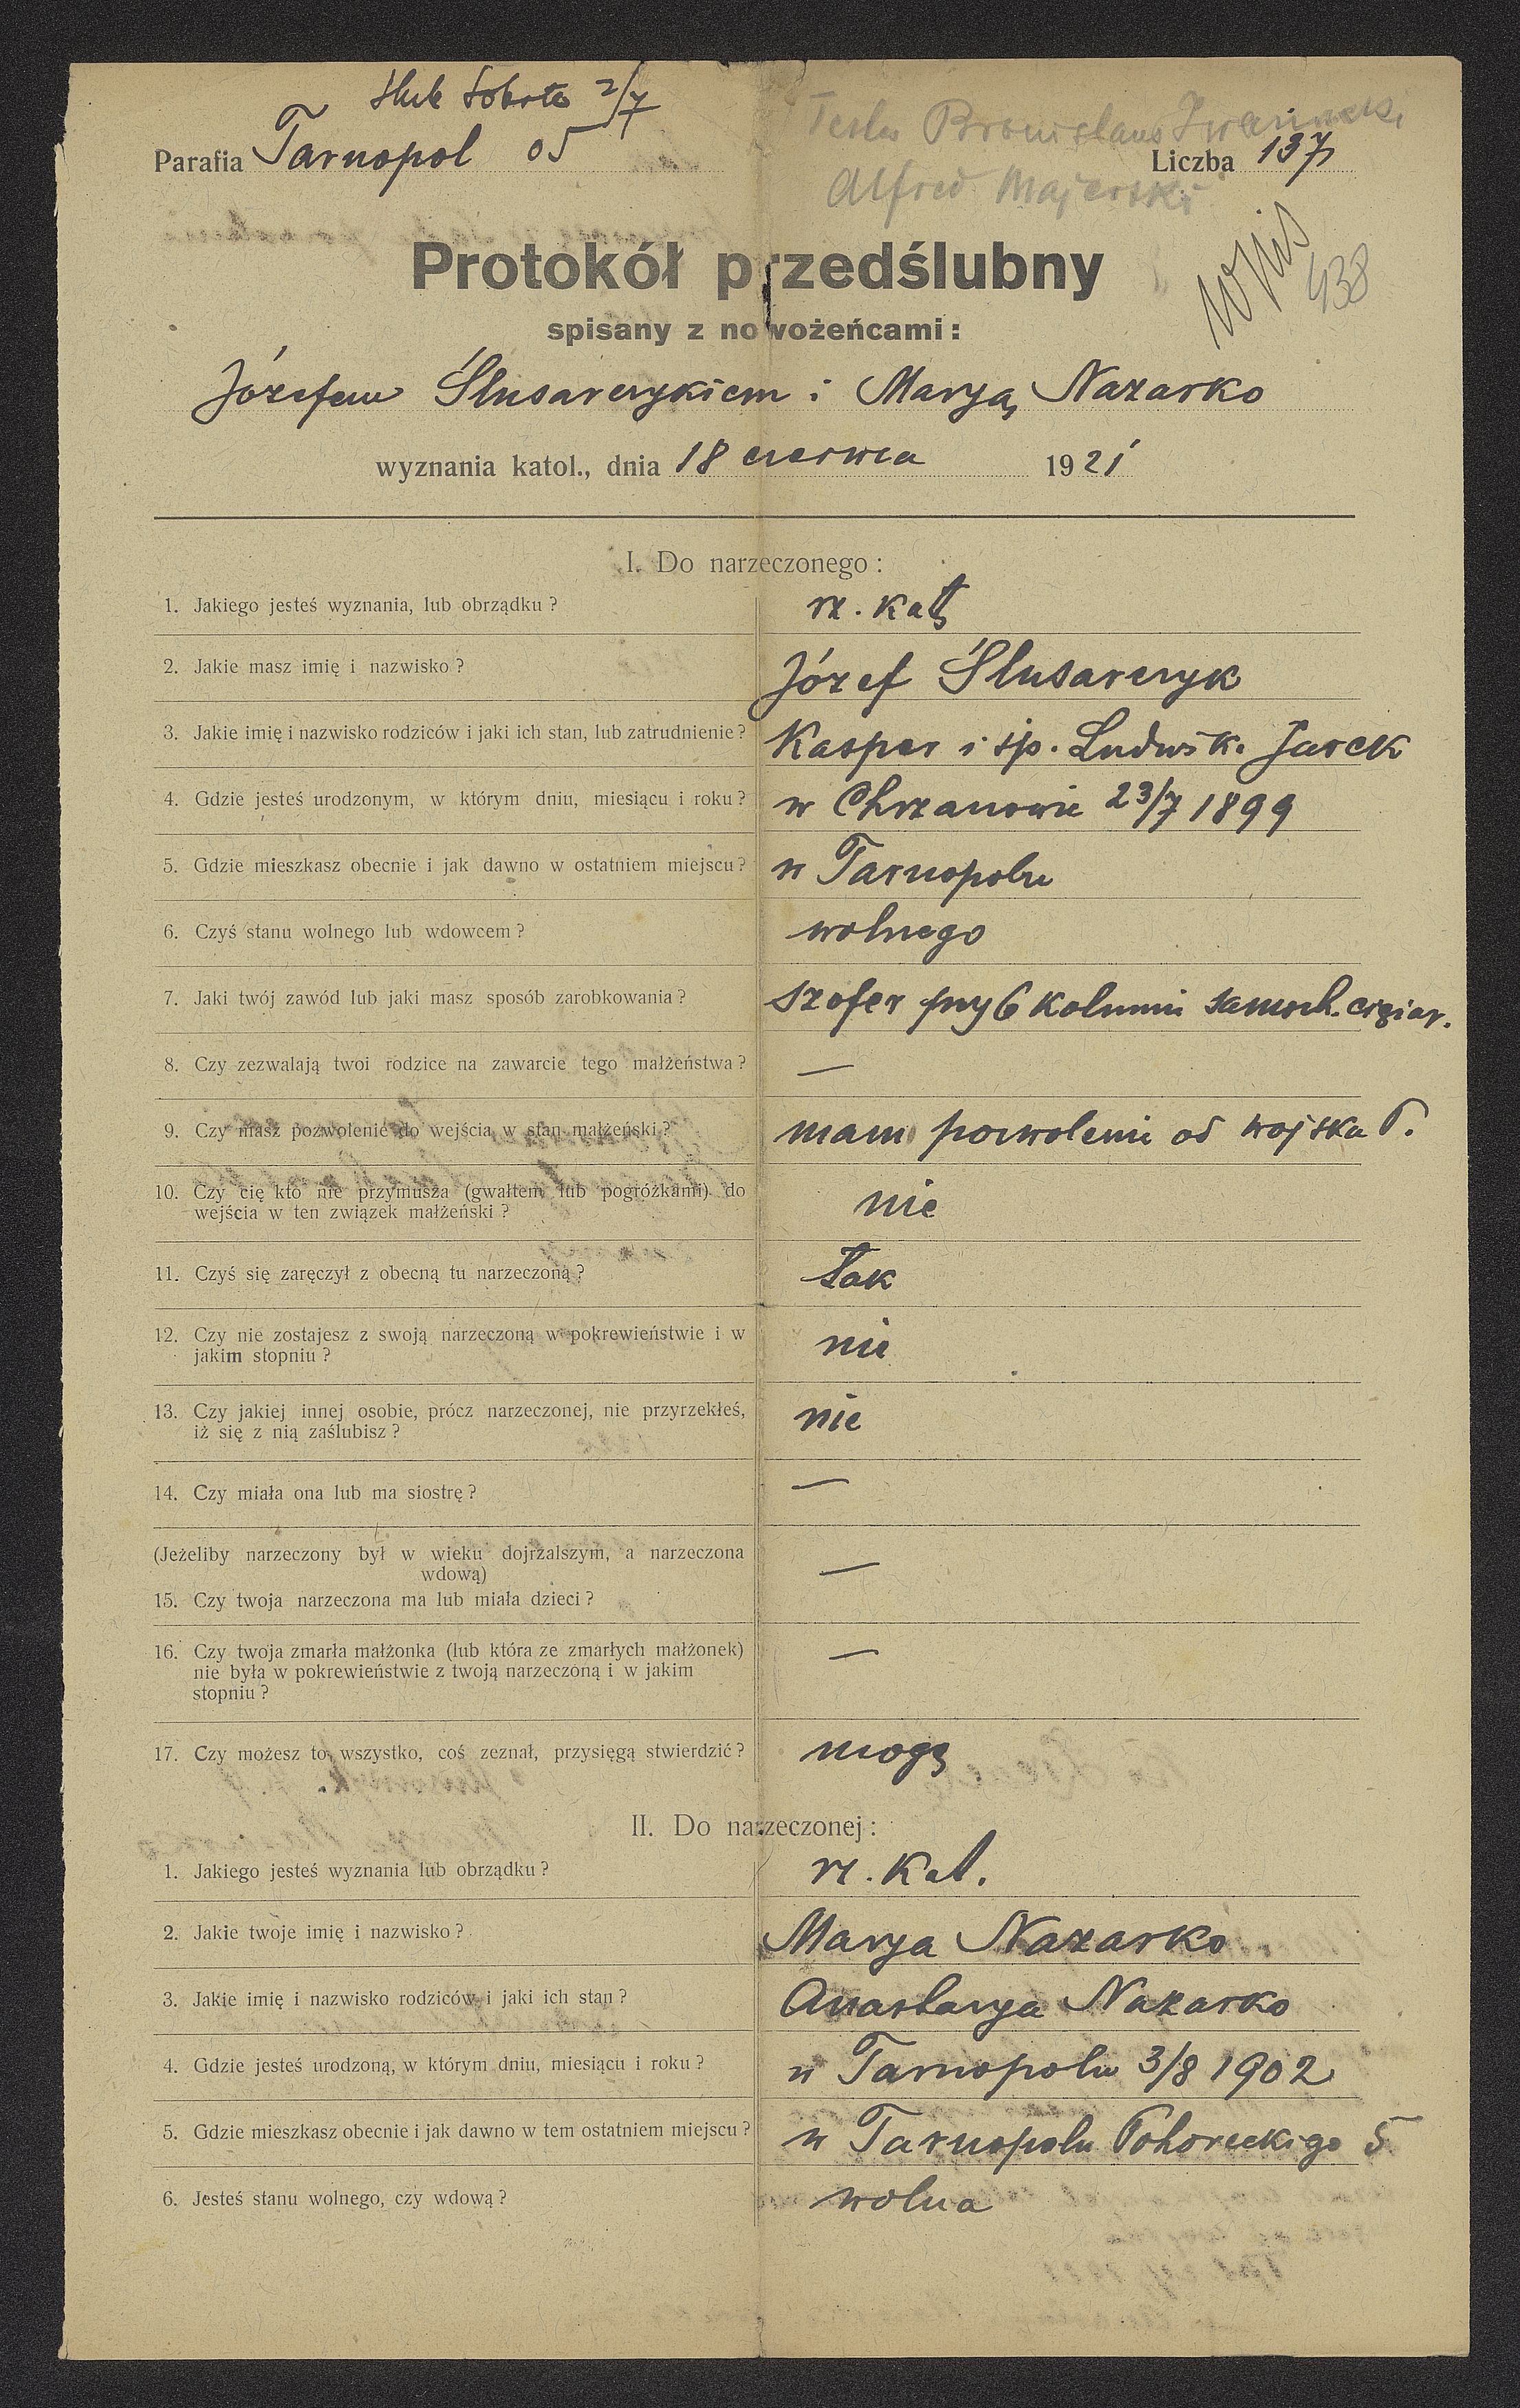 Ślub Sobota 2/7
Parafia Tarnopol
Testes Bronisław Iwanicki
Liczba 137
Alfred Majerski
Protokół przedślubny
wpis
438
spisany z nowożeńcami:
Józefem Ślusarczykiem i Maryą Nazarko
wyznania katol., dnia 18 czerwca 1921
I. Do narzeczonego:
1. Jakiego jesteś wyznania, lub obrządku? rz. kat
2. Jakie masz imię i nazwisko? Józef Ślusarczyk
3. Jakie imię i nazwisko rodziców i jaki ich stan, lub zatrudnienie? Kasper i śp. Ludwik. Jarek
4. Gdzie jesteś urodzonym, w którym dniu, miesiącu i roku? w Chrzanowie 23/7 1899
5. Gdzie mieszkasz obecnie i jak dawno w ostatniem miejscu? w Tarnopolu
6. Czyś stanu wolnego lub wdowcem? wolnego
7. Jaki twój zawód lub jaki masz sposób zarobkowania? szofer przy 6 kolumnie samoch. ciężar.
8. Czy zezwalają twoi rodzice na zawarcie tego małżeństwa? —
9. Czy masz pozwolenie do wejścia w stan małżeński? mam pozwolenie od wojska P.
10. Czy cię kto nie przymusza (gwałtem lub pogróżkami) do
wejścia w ten związek małżeński? nie
11. Czyś się zaręczył z obecną tu narzeczoną? Tak
12. Czy nie zostajesz z swoją narzeczoną w pokrewieństwie i w
jakim stopniu? nie
13. Czy jakiej innej osobie, prócz narzeczonej, nie przyrzekłeś,
iż się z nią zaślubisz? nie
14. Czy miała ona lub ma siostrę? —
(Jeżeliby narzeczony był w wieku dojrzalszym, a narzeczona
wdową) —
15. Czy twoja narzeczona ma lub miała dzieci?
16. Czy twoja zmarła małżonka (lub która ze zmarłych małżonek) —
nie była w pokrewieństwie z twoją narzeczoną i w jakim
stopniu?
17. Czy możesz to wszystko, coś zeznał, przysięgą stwierdzić? mogę
II. Do narzeczonej:
1. Jakiego jesteś wyznania lub obrządku? rz. kat.
2. Jakie twoje imię i nazwisko? Marya Nazarko
3. Jakie imię i nazwisko rodziców i jaki ich stan? Anastazya Nazarko
4. Gdzie jesteś urodzoną, w którym dniu, miesiącu i roku? w Tarnopolu 3/8 1902
5. Gdzie mieszkasz obecnie i jak dawno w tem ostatniem miejscu? w Tarnopolu Pohoreckiego 5
6. Jesteś stanu wolnego, czy wdową? wolna